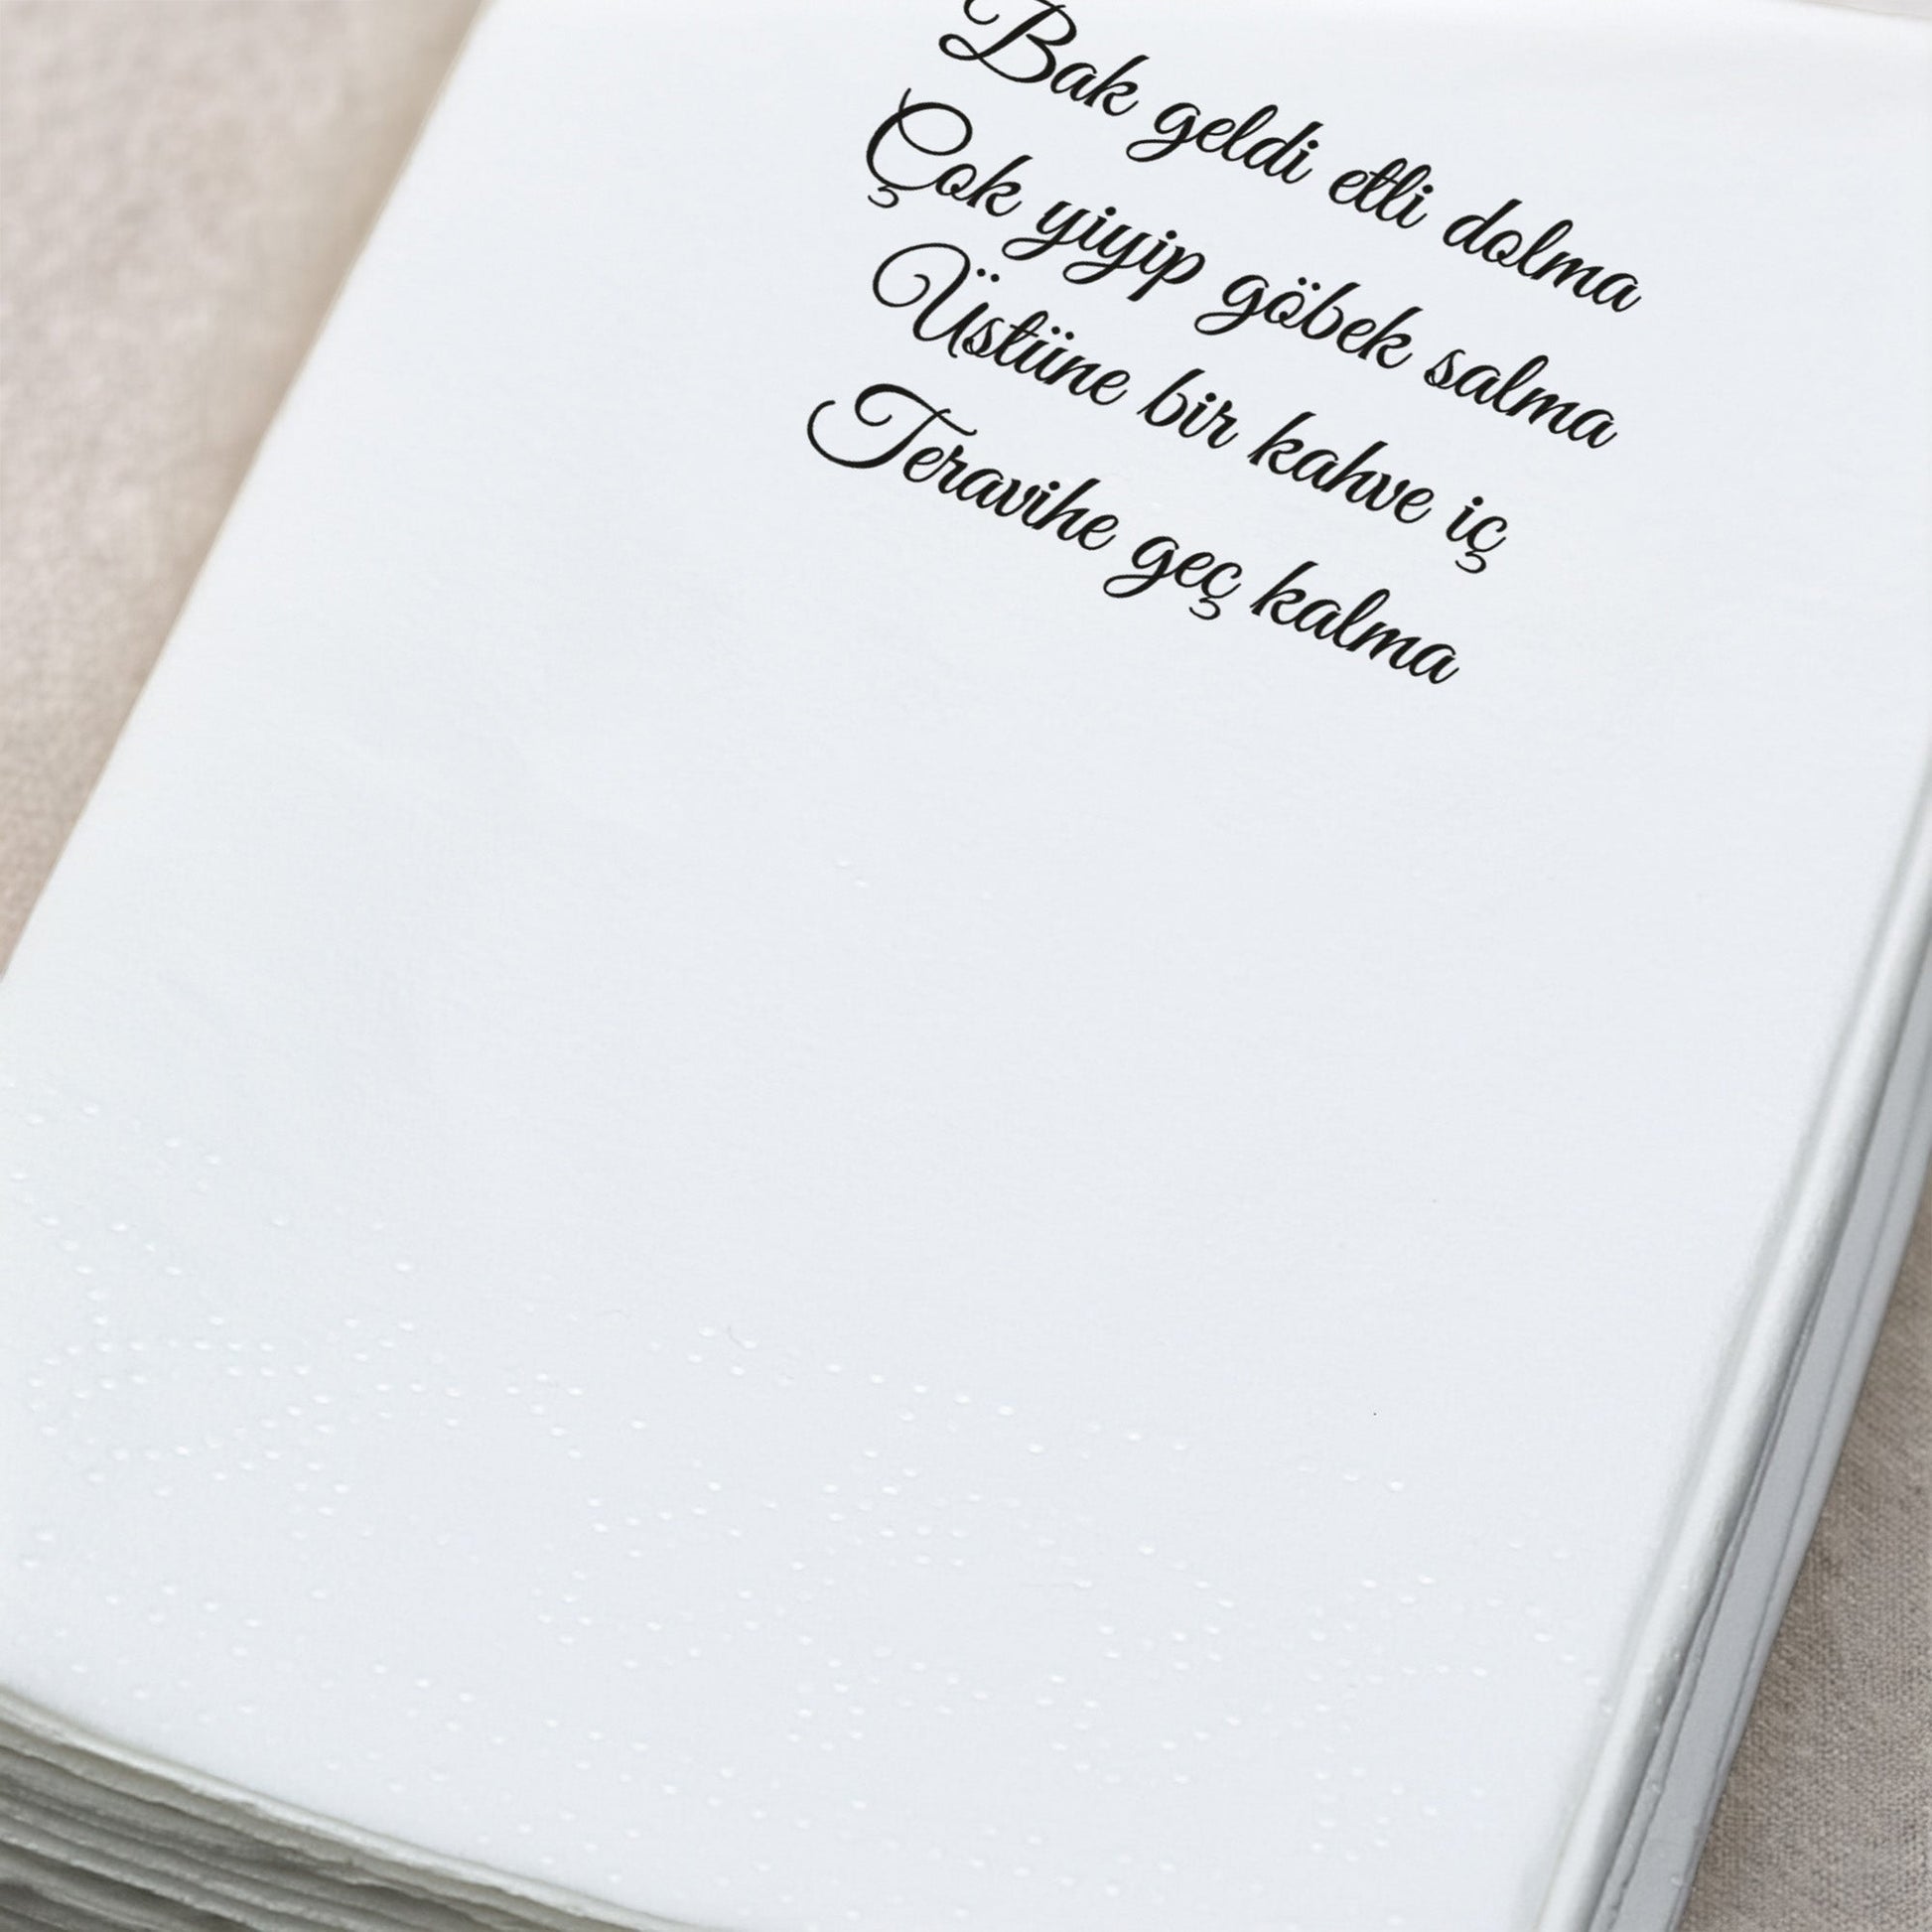 Bak geldi etli dolma
Çok yiyip göbek salma
Üstüne bir kahve iç
Teravihe geç kalma